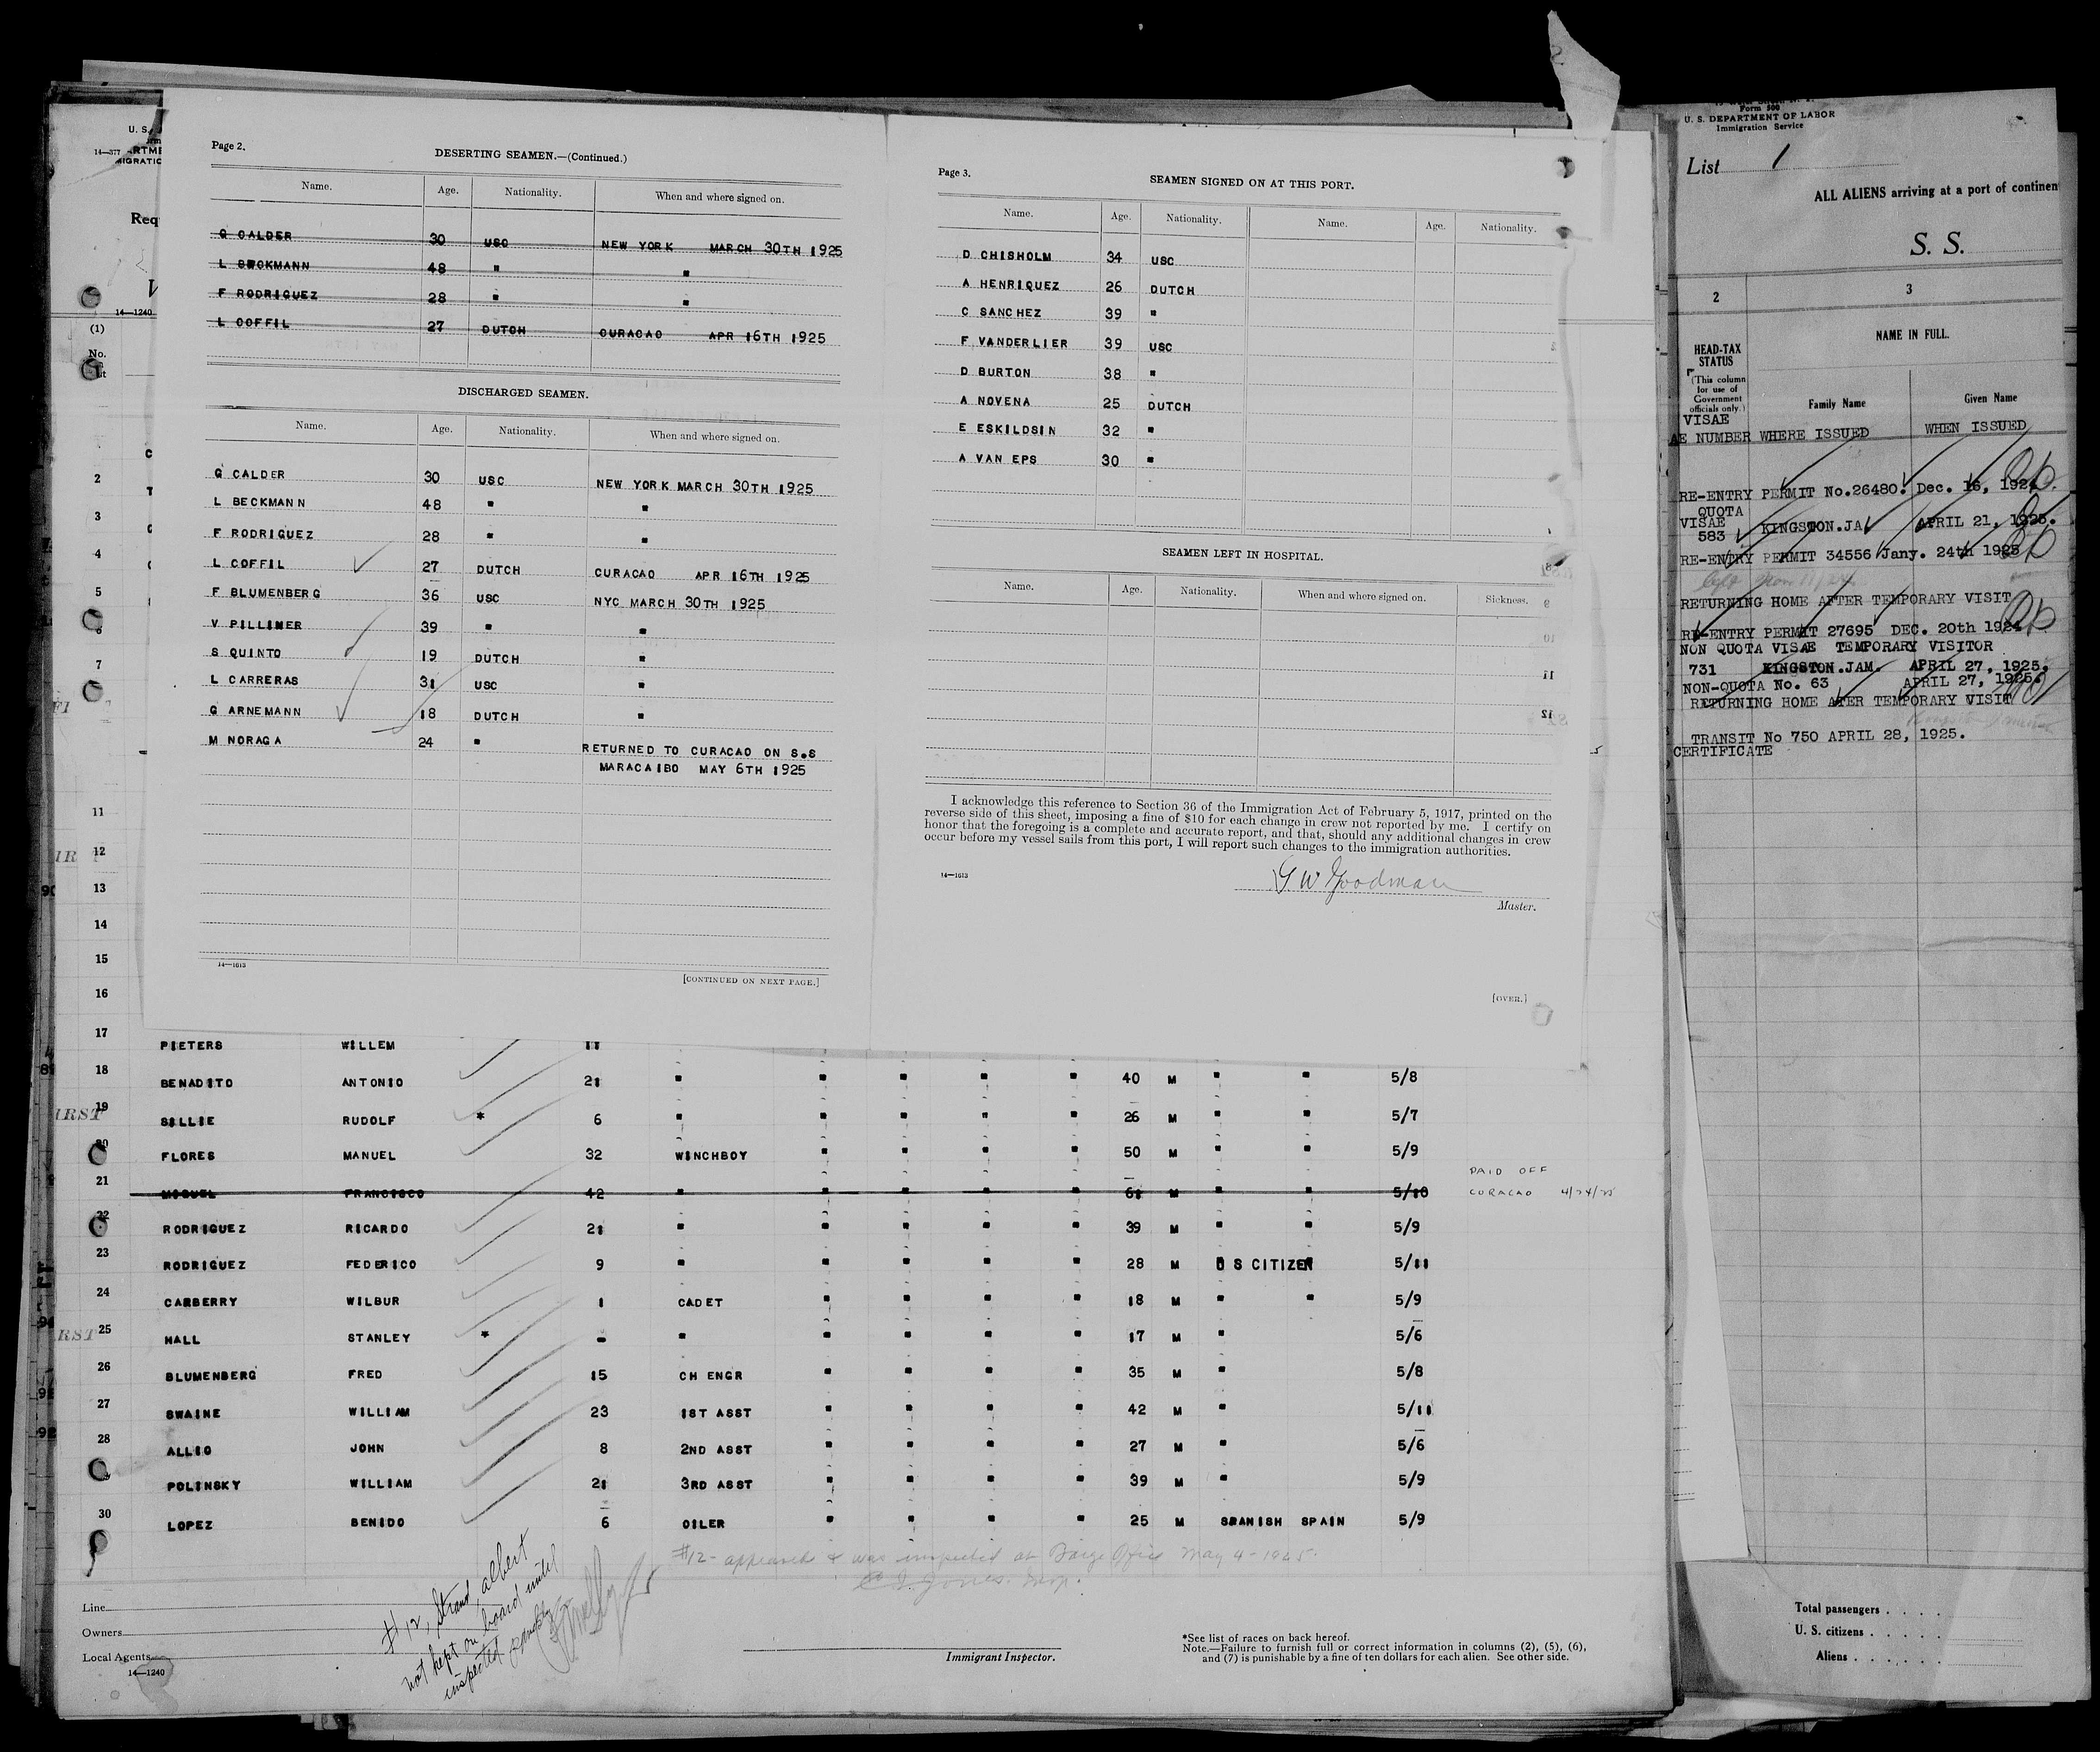 Page 2.
DESERTING SEAMEN.—(Continued.)
Name. Age. Nationality. When and where signed on.
G CALDER 30 USC NEW YORK MARCH 30TH 1925
L BECKMANN 48 " "
F RODRIGUEZ 28 " "
L COFFIL 27 DUTCH CURACAO APR 16TH 1925
DISCHARGED SEAMEN.
Name. Age. Nationality. When and where signed on.
G CALDER 30 USC NEW YORK MARCH 30TH 1925
L BECKMANN 48 " "
F RODRIGUEZ 28 " "
L COFFIL 27 DUTCH CURACAO APR 16TH 1925
F BLUMENBERG 36 USC NYC MARCH 30TH 1925
V PILLINER 39 " "
S QUINTO 19 DUTCH "
L CARRERAS 31 USC "
G ARNEMANN 18 DUTCH "
M NORAGA 24 " RETURNED TO CURACAO ON S.S
MARACAIBO MAY 6TH 1925
14—1613
[CONTINUED ON NEXT PAGE.]
Page 3.
SEAMEN SIGNED ON AT THIS PORT.
Name. Age. Nationality. Name. Age. Nationality.
D CHISHOLM 34 USC
A HENRIQUEZ 26 DUTCH
C SANCHEZ 39 "
F VANDERLIER 39 USC
D BURTON 38 "
A NOVENA 25 DUTCH
E ESKILDSIN 32 "
A VAN EPS 30 "
SEAMEN LEFT IN HOSPITAL.
Name. Age. Nationality. When and where signed on. Sickness.
I acknowledge this reference to Section 36 of the Immigration Act of February 5, 1917, printed on the
reverse side of this sheet, imposing a fine of $10 for each change in crew not reported by me. I certify on
honor that the foregoing is a complete and accurate report, and that, should any additional changes in crew
occur before my vessel sails from this port, I will report such changes to the immigration authorities.
14—1613
G. W. Goodman
Master.
[OVER.]
U. S.
14—377
Req
14—1240
(1)
No.
2
3
4
5
6
7
11
12
13
14
15
16
17 PIETERS WILLEM 11
18 BENADITO ANTONIO 21 " " " " " 40 M " " 5/8
19 SILLIE RUDOLF * 6 " " " " " 26 M " " 5/7
20 FLORES MANUEL 32 WINCHBOY " " " " 50 M " " 5/9
21 MIGUEL FRANCISCO 42 " " " " " 61 M " " 5/10 PAID OFF
CURACAO 4/24/25
22 RODRIGUEZ RICARDO 21 " " " " " 39 M " " 5/9
23 RODRIGUEZ FEDERICO 9 " " " " " 28 M U S CITIZEN 5/11
24 CARBERRY WILBUR 1 CADET " " " " 18 M " " 5/9
25 HALL STANLEY * - " " " " " 17 M " 5/6
26 BLUMENBERG FRED 15 CH ENGR " " " " 35 M " 5/8
27 SWAINE WILLIAM 23 1ST ASST " " " " 42 M " 5/11
28 ALLIO JOHN 8 2ND ASST " " " " 27 M " 5/6
POLINSKY WILLIAM 21 3RD ASST " " " " 39 M " 5/9
30 LOPEZ BENIDO 6 OILER " " " " 25 M SPANISH SPAIN 5/9
#12- appeared & was inspected at Barge Office May 4-1925.
Jones. Insp.
#12, Strand, albert
not kept on board until
inspected
Line
Owners
Local Agents
14—1240
Immigrant Inspector.
*See list of races on back hereof.
Note.—Failure to furnish full or correct information in columns (2), (5), (6),
and (7) is punishable by a fine of ten dollars for each alien. See other side.
Form 500
U. S. DEPARTMENT OF LABOR
Immigration Service
List 1
ALL ALIENS arriving at a port of continen
S. S.
2 3
HEAD-TAX
STATUS
(This column
for use of
Government
officials only.)
NAME IN FULL.
Family Name Given Name
VISAE
AE NUMBER WHERE ISSUED WHEN ISSUED
RE-ENTRY PERMIT No.26480. Dec. 16, 1924.
QUOTA
VISAE
583 KINGSTON.JA APRIL 21, 1925.
RE-ENTRY PERMIT 34556 Jany. 24th 1925
RETURNING HOME AFTER TEMPORARY VISIT
RE-ENTRY PERMIT 27695 DEC. 20th 1924
NON QUOTA VISAE TEMPORARY VISITOR
731 KINGSTON.JAM. APRIL 27, 1925.
NON-QUOTA No. 63 APRIL 27, 1925.
RETURNING HOME ATER TEMPORARY VISIT
TRANSIT No 750 APRIL 28, 1925.
CERTIFICATE
Total passengers
U. S. citizens
Aliens